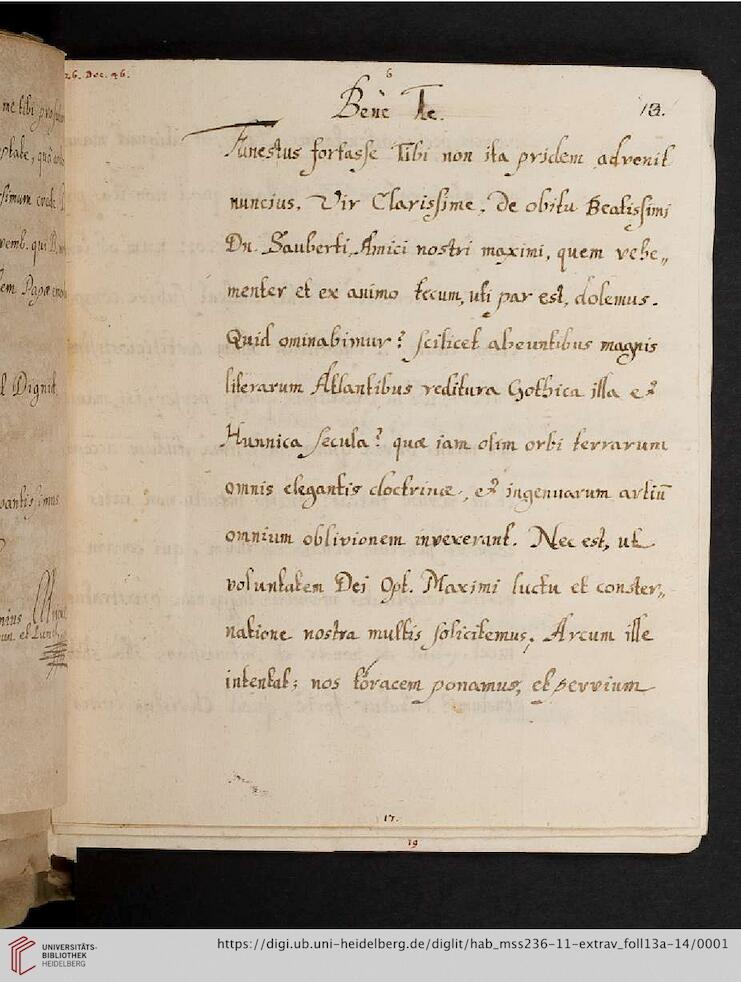 26. Dec. 46.
6
Benè Te.
13.
Funestus fortasse Tibi non ita pridem advenit
nuncius, Vir Clarissime, De obitu Beatissimi
Dn. Sauberti, Amici nostri maximi, quem vehe„
menter et ex animo tecum, uti par est, dolemus.
Quid ominabimur? scilicet abeuntibus magnis
literarum Atlantibus reditura Gothica illa et
Hunnica secula? quæ iam olim orbi terrarum
omnis elegantis doctrinæ, et ingenuarum artiū
omnium oblivionem invexerant. Nec est, ut
voluntatem Dei Opt. Maximi luctu et conster„
natione nostra multis solicitemus. Arcum ille
intentat; nos toracem ponamus, et pervium
17.
19
me tibi
ptate, quā
ssimum
vemb. qui
em Papæ
Dignit.
UNIVERSITÄTS-
BIBLIOTHEK
HEIDELBERG
https://digi.ub.uni-heidelberg.de/diglit/hab_mss236-11-extrav_foll13a-14/0001